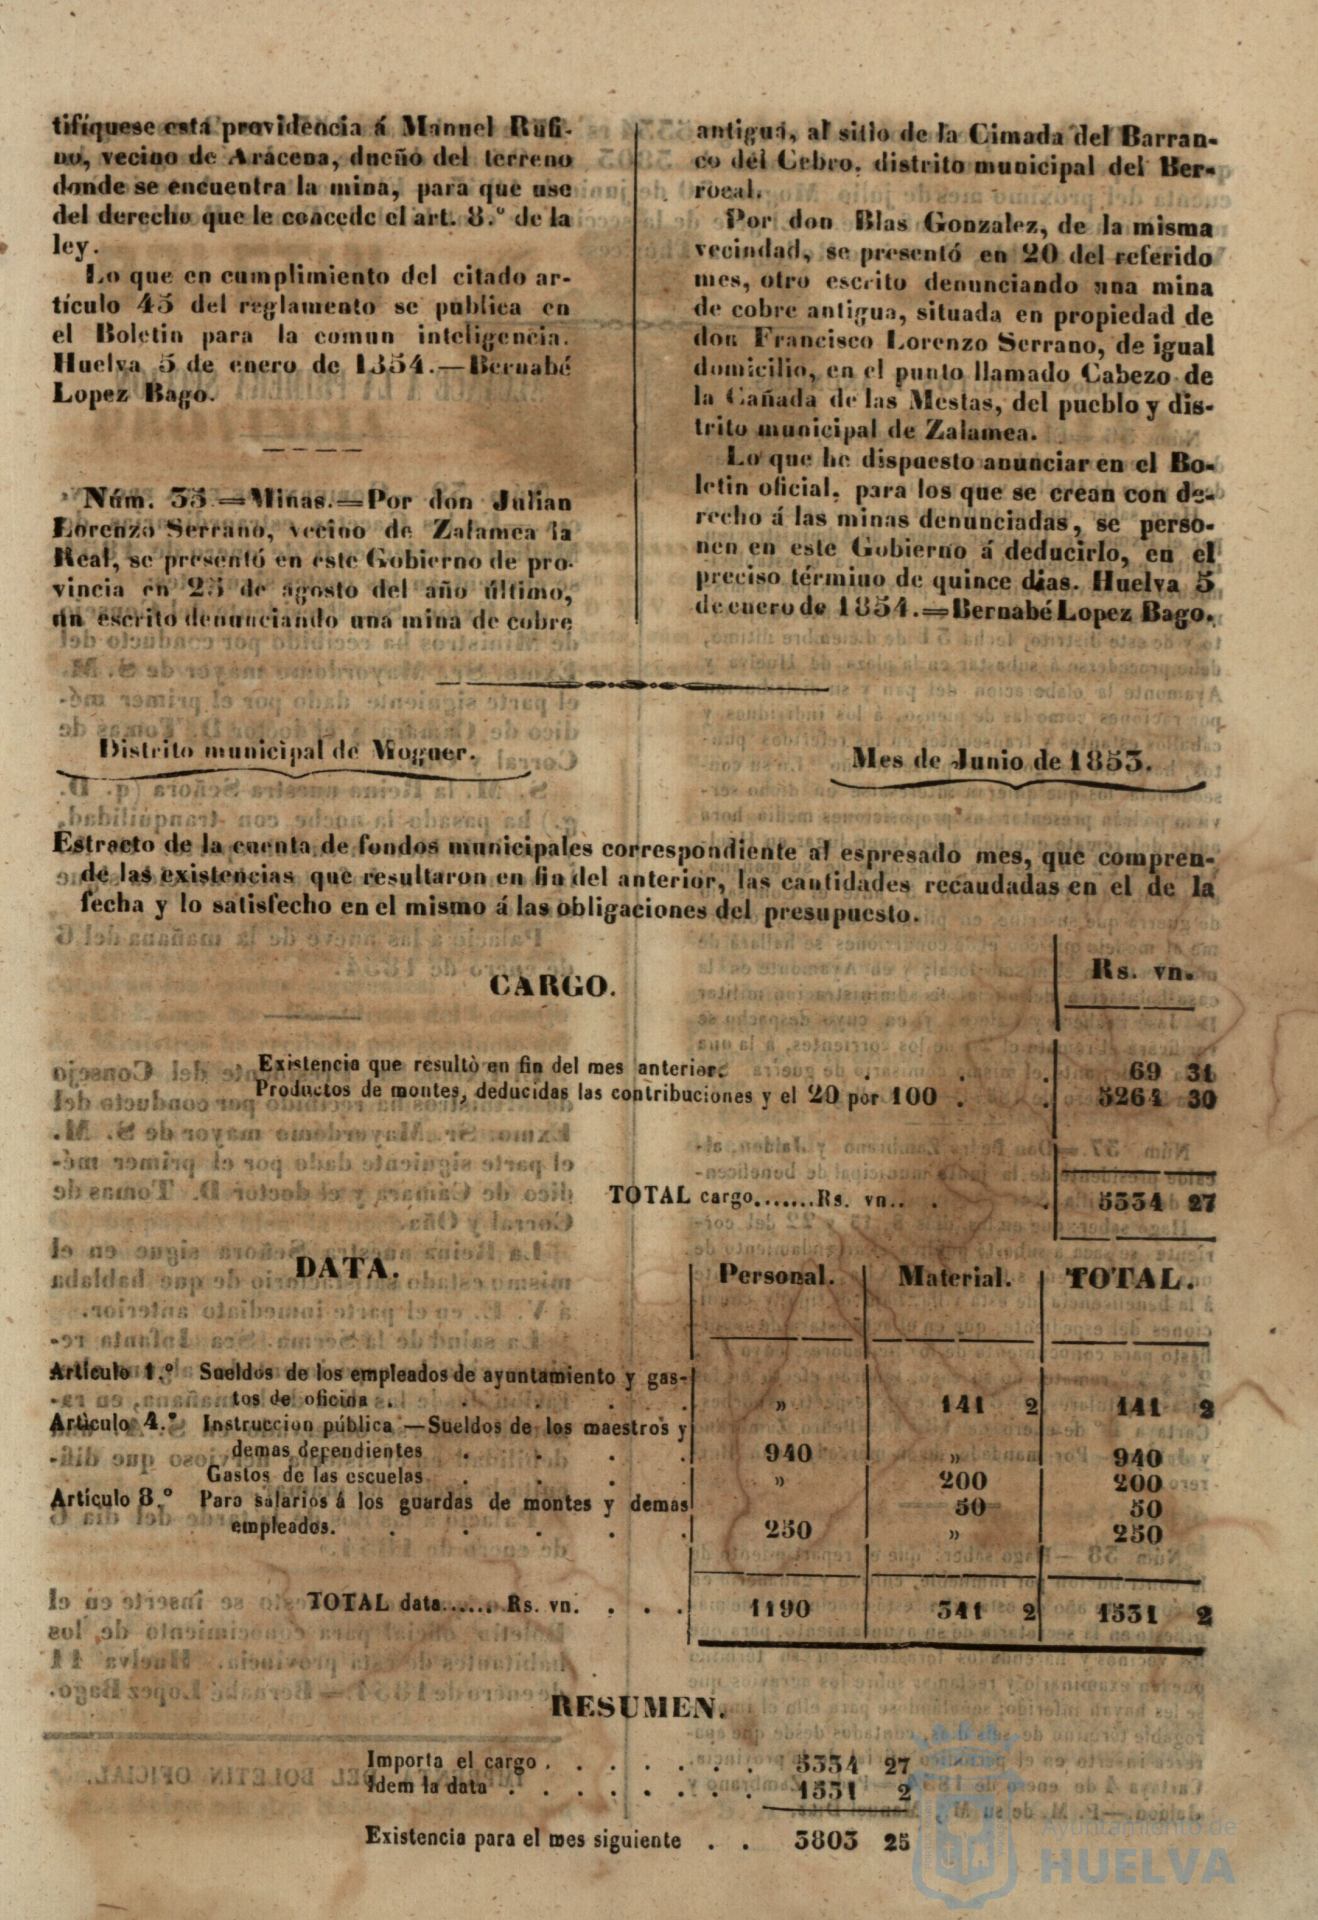 tifíquese esta providencia á Manuel Rufi-
no, vecino de Aracena, dueño del terreno
donde se encuentra la mina, para que use
del derecho que le concede el art. 8.º de la
ley.
Lo que en cumplimiento del citado ar-
tículo 45 del reglamento se publica en
el Boletin para la comun inteligencia.
Huelva 5 de enero de 1854.—Bernabé
Lopez Bago.
Núm. 35.—Minas.—Por don Julian
Lorenzo Serrano, vecino de Zalamea la
Real, se presentó en este Gobierno de pro-
vincia en 23 de agosto del año último,
un escrito denunciando una mina de cobre
antigua, al sitio de la Cimada del Barran-
co del Cebro, distrito municipal del Ber-
rocal.
Por don Blas Gonzalez, de la misma
vecindad, se presentó en 20 del referido
mes, otro escrito denunciando una mina
de cobre antigua, situada en propiedad de
don Francisco Lorenzo Serrano, de igual
domicilio, en el punto llamado Cabezo de
la Cañada de las Mestas, del pueblo y dis-
trito municipal de Zalamea.
Lo que he dispuesto anunciar en el Bo-
letin oficial, para los que se crean con de-
recho á las minas denunciadas, se perso-
nen en este Gobierno á deducirlo, en el
preciso término de quince dias. Huelva 5
de enero de 1854.—Bernabé Lopez Bago.
Distrito municipal de Moguer.
Mes de Junio de 1853.
Estracto de la cuenta de fondos municipales correspondiente al espresado mes, que compren-
de las existencias que resultaron en fin del anterior, las cantidades recaudadas en el de la
fecha y lo satisfecho en el mismo á las obligaciones del presupuesto.
CARGO. Rs. vn.
Existencia que resultò en fin del mes anterior. . . . 69 31
Productos de montes, deducidas las contribuciones y el 20 por 100 . . 5264 30
TOTAL cargo.......Rs. vn.. . . 5334 27
DATA. Personal. Material. TOTAL.
Artículo 1.º Sueldos de los empleados de ayuntamiento y gas-
tos de oficina . . . . . » 141 2 141 2
Artìculo 4.º Instruccion pública —Sueldos de los maestros y
demas dependientes . . . . 940 » 940
Gastos de las escuelas . . . . » 200 200
50 50
Artículo 8.º Para salarios á los guardas de montes y demas
empleados. . . . . . 250 » 250
TOTAL data...... Rs. vn. . . . 1190 341 2 1531 2
RESUMEN.
Importa el cargo . . . . . . . 5334 27
Idem la data . . . . . . . . 1531 2
Existencia para el mes siguiente . . 3803 25
Ayuntamiento de
HUELVA